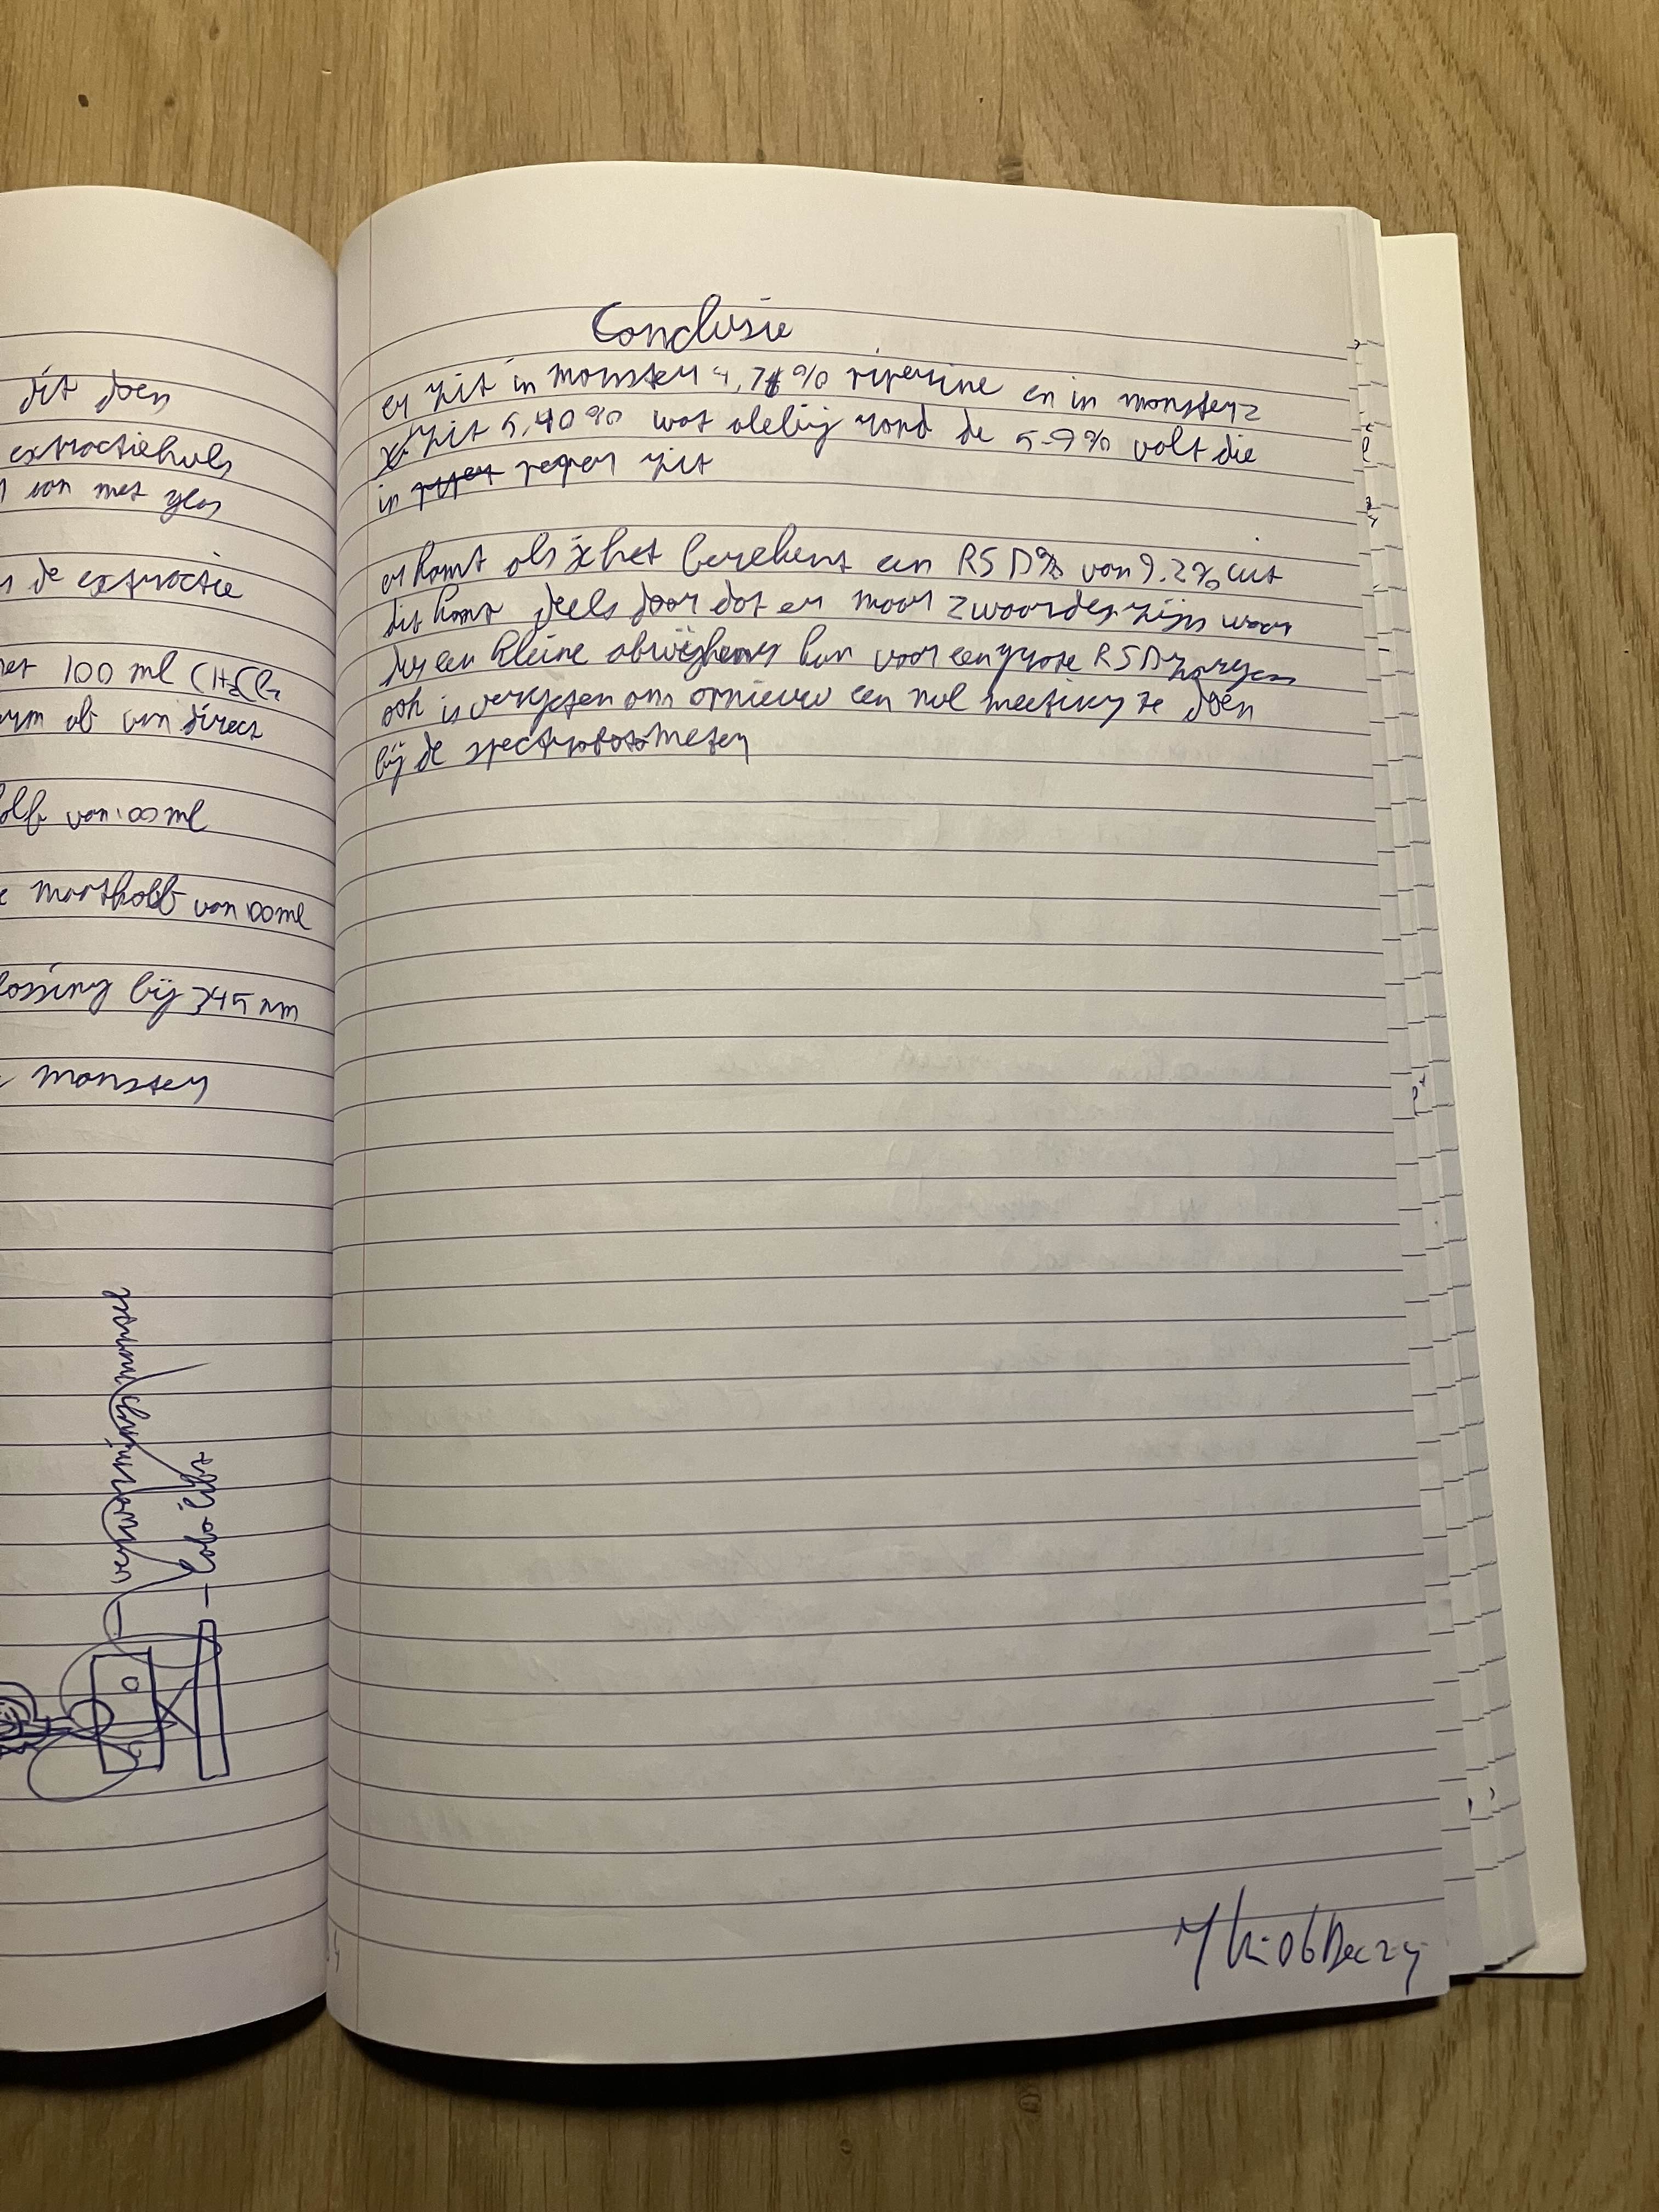 dit doen
extractiehuls
van met glas
de extractie
100 ml CH2Cl2
af van direct
kolf van 100 ml
maatkolf van 100 ml
lossing bij 345 nm
monster
verwarmingsmantel
labolift
Conclusie
er zit in monster 4,71% piperine en in monster 2
zit 5,40% wat alebij rond de 5-9% valt die
in peper zit
er komt als je het berekent een RSD% van 9.2% uit
dit komt deels door dat er maar 2 waardes zijn waar
dus een kleine voor een grote RSD zorgen
ook is vergeten om opnieuw een nul meeting te doen
bij de spectrofotometer
06 Dec